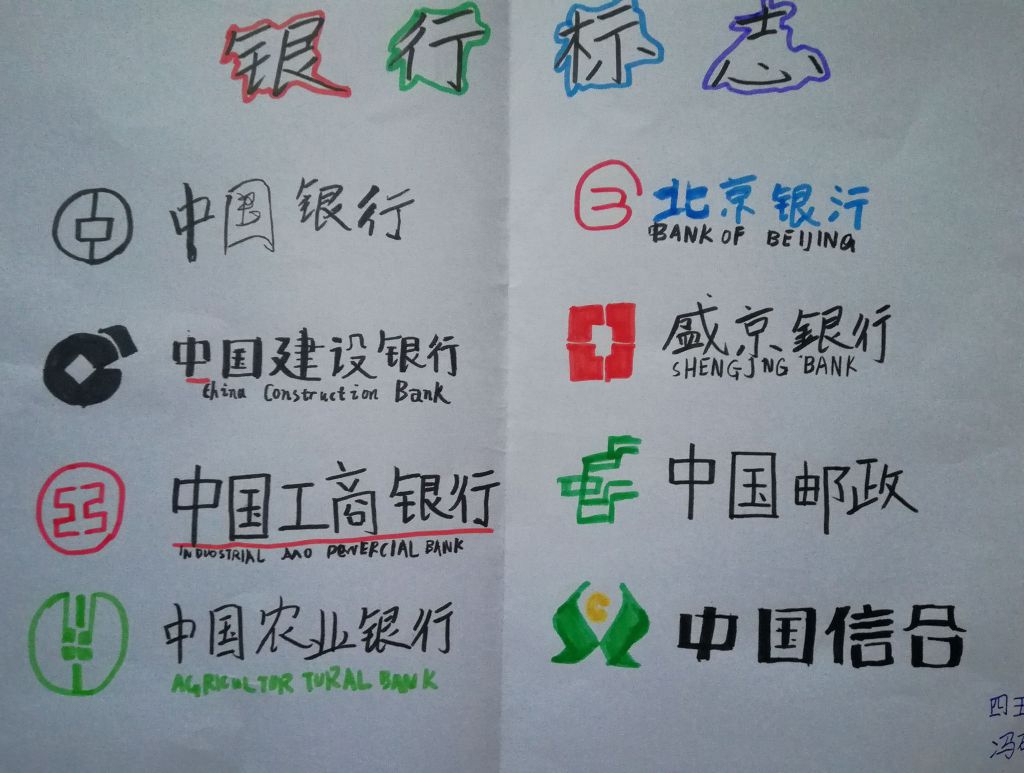 银行标志
中国银行
中国建设银行
China Construction Bank
中国工商银行
INDUOSTRIAL AND PEMERCIAL BANK
中国农业银行
AGRICULTOR TURAL BANK
北京银行
BANK OF BEIJING
盛京银行
SHENGJING BANK
中国邮政
中国信合
四五
冯